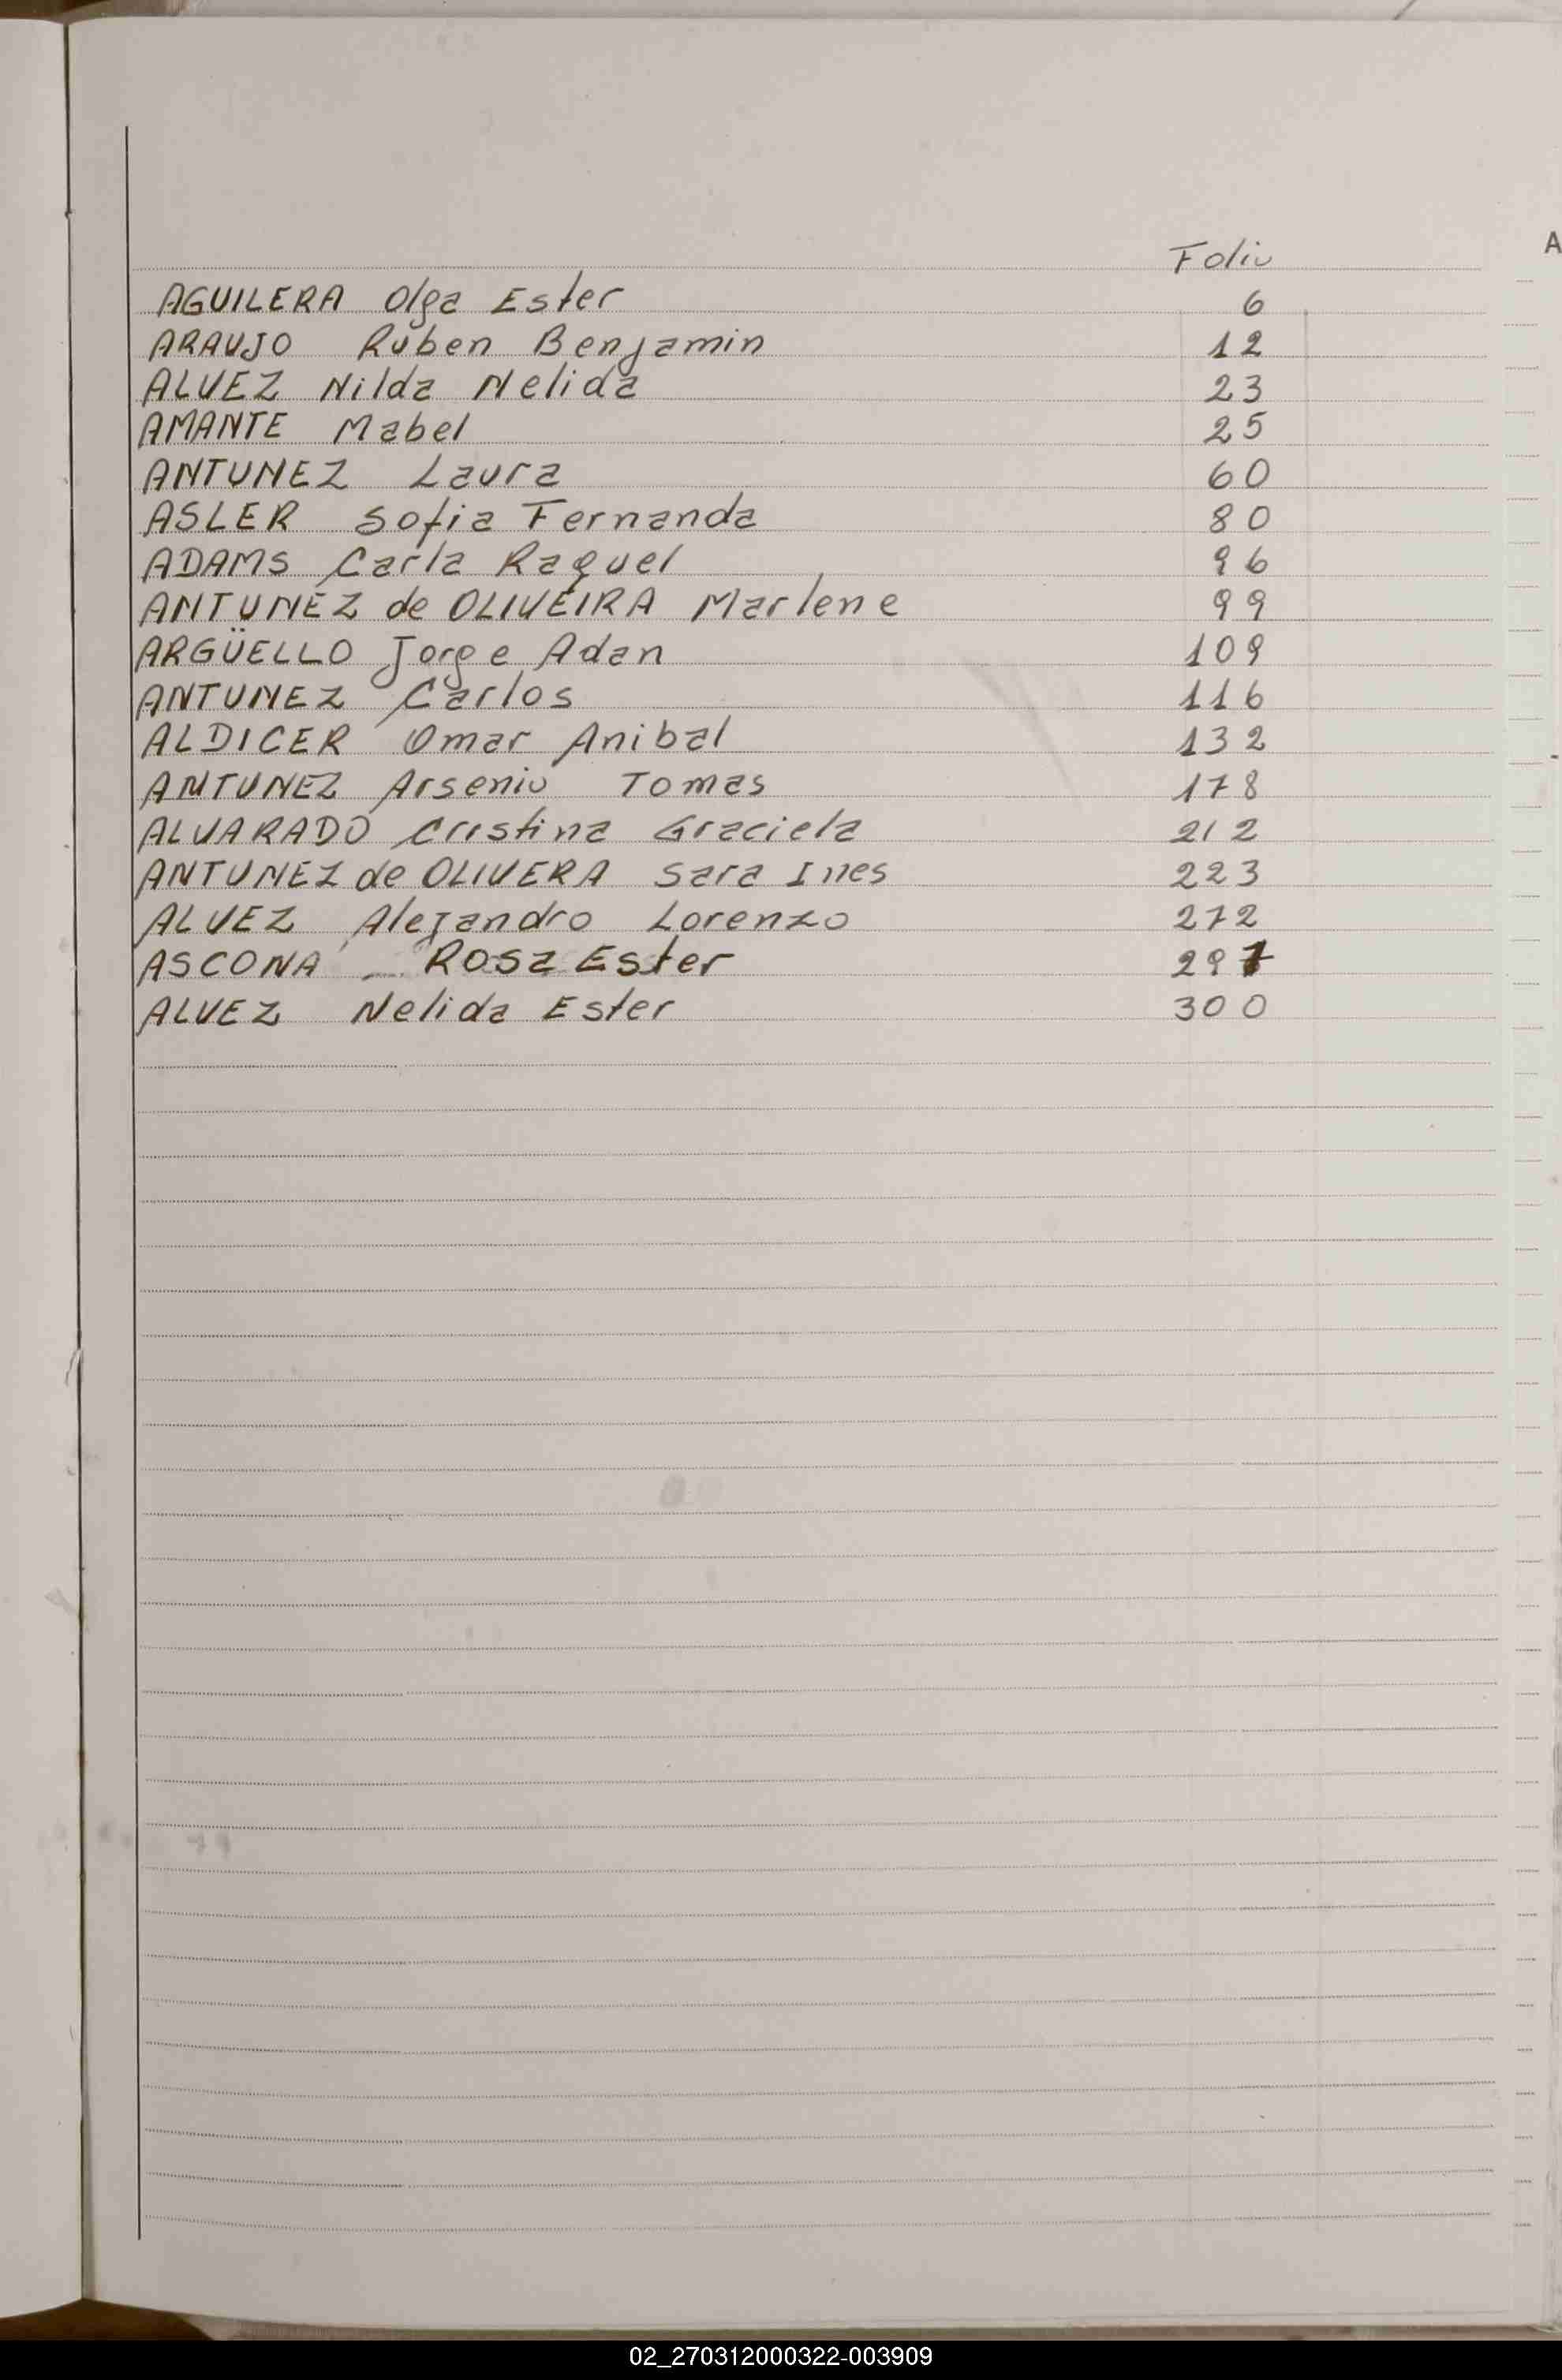 Folio
A
AGUILERA Olga Ester 6
ARAUJO Ruben Benjamin 12
ALVEZ Nilda Nelida 23
AMANTE Mabel 25
ANTUNEZ Laura 60
ASLER Sofia Fernanda 80
ADAMS Carla Raquel 96
ANTUNEZ de OLIVEIRA Marlene 99
ARGÜELLO Jorge Adan 109
ANTUNEZ Carlos 116
ALDICER Omar Anibal 132
ANTUNEZ Arsenio Tomas 178
ALVARADO Cristina Graciela 212
ANTUNEZ de OLIVERA Sara Ines 223
ALVEZ Alejandro Lorenzo 272
ASCONA Rosa Ester 297
ALVEZ Nelida Ester 300
02_270312000322-003909